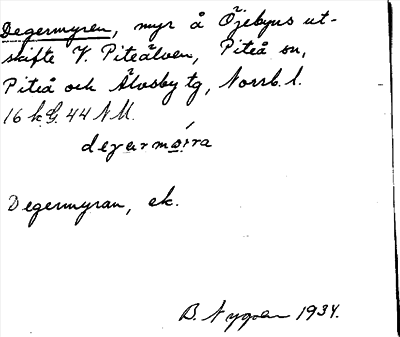 Degermyren, myr å Öjebyns ut-
skifte V. Piteälven, Piteå sn,
Piteå och Älvsby tg, Norrb. l.
16 k G. 44 NM.
degarmo̲i̲ra
Degermyran, ek.
B. Nygren 1934.